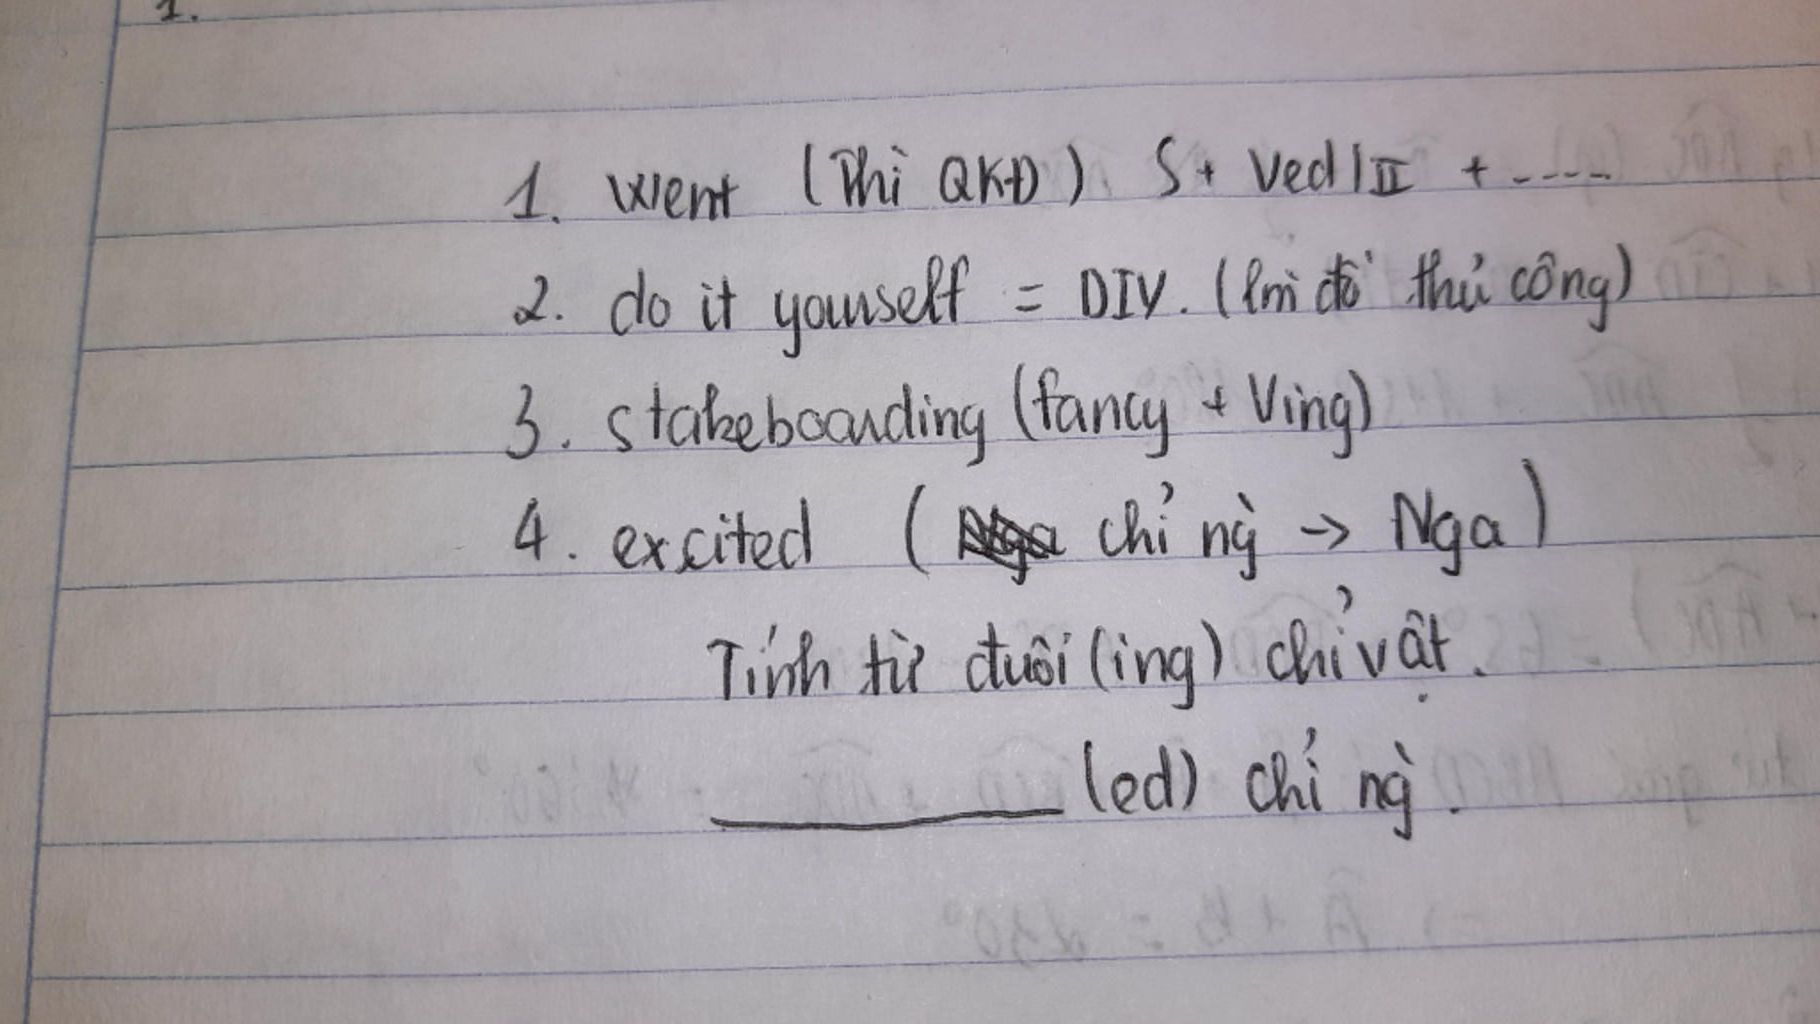 1.
1. went (Thì QKĐ) S + Ved/II + .....
2. do it yourself = DIY. (làm đồ thủ công)
3. stakeboarding (fancy + Ving)
4. excited ( chỉ ng̀ → Nga)
Tính từ đuôi (ing) chỉ vật.
______ (ed) chỉ ng̀.